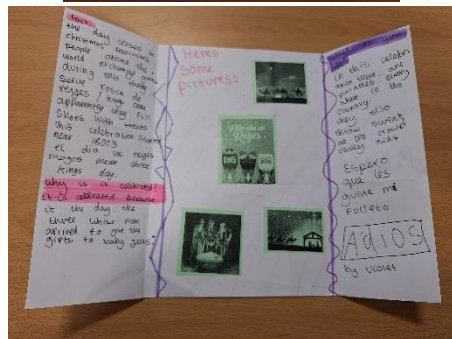 the day closes to
christmas festivities
People around the
world exchange gifts
during this they
Serve rosca de
reyes / king cake
apparently they fill
Shoes with treats
this celebration started
near
el dia de reyes
means three
kings day.
why is it celebrated?
it is celebrated because
it the day the
three white men
arrived to give the
gifts to baby jesus.
Heres
Some
pictures:
Feliz día de
Reyes
in this
there are
parades every
where in the
country.
they also
throw sweets
at the crowd
usually kids
Espero
que les
guste mi
Folleto
AdioS
by violet